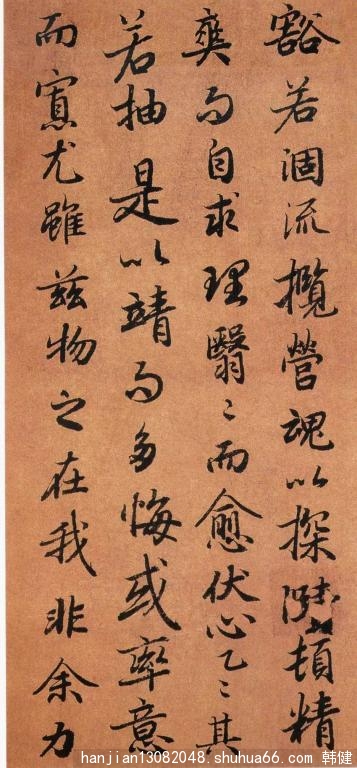 豁若涸流攬營魂以探頓精
爽而自求理翳〻而愈伏心乙〻其
若抽是以靖而多悔或率意
而寡尤雖茲物之在我非余力
hanjian13082048.shuhua66.com 韩健